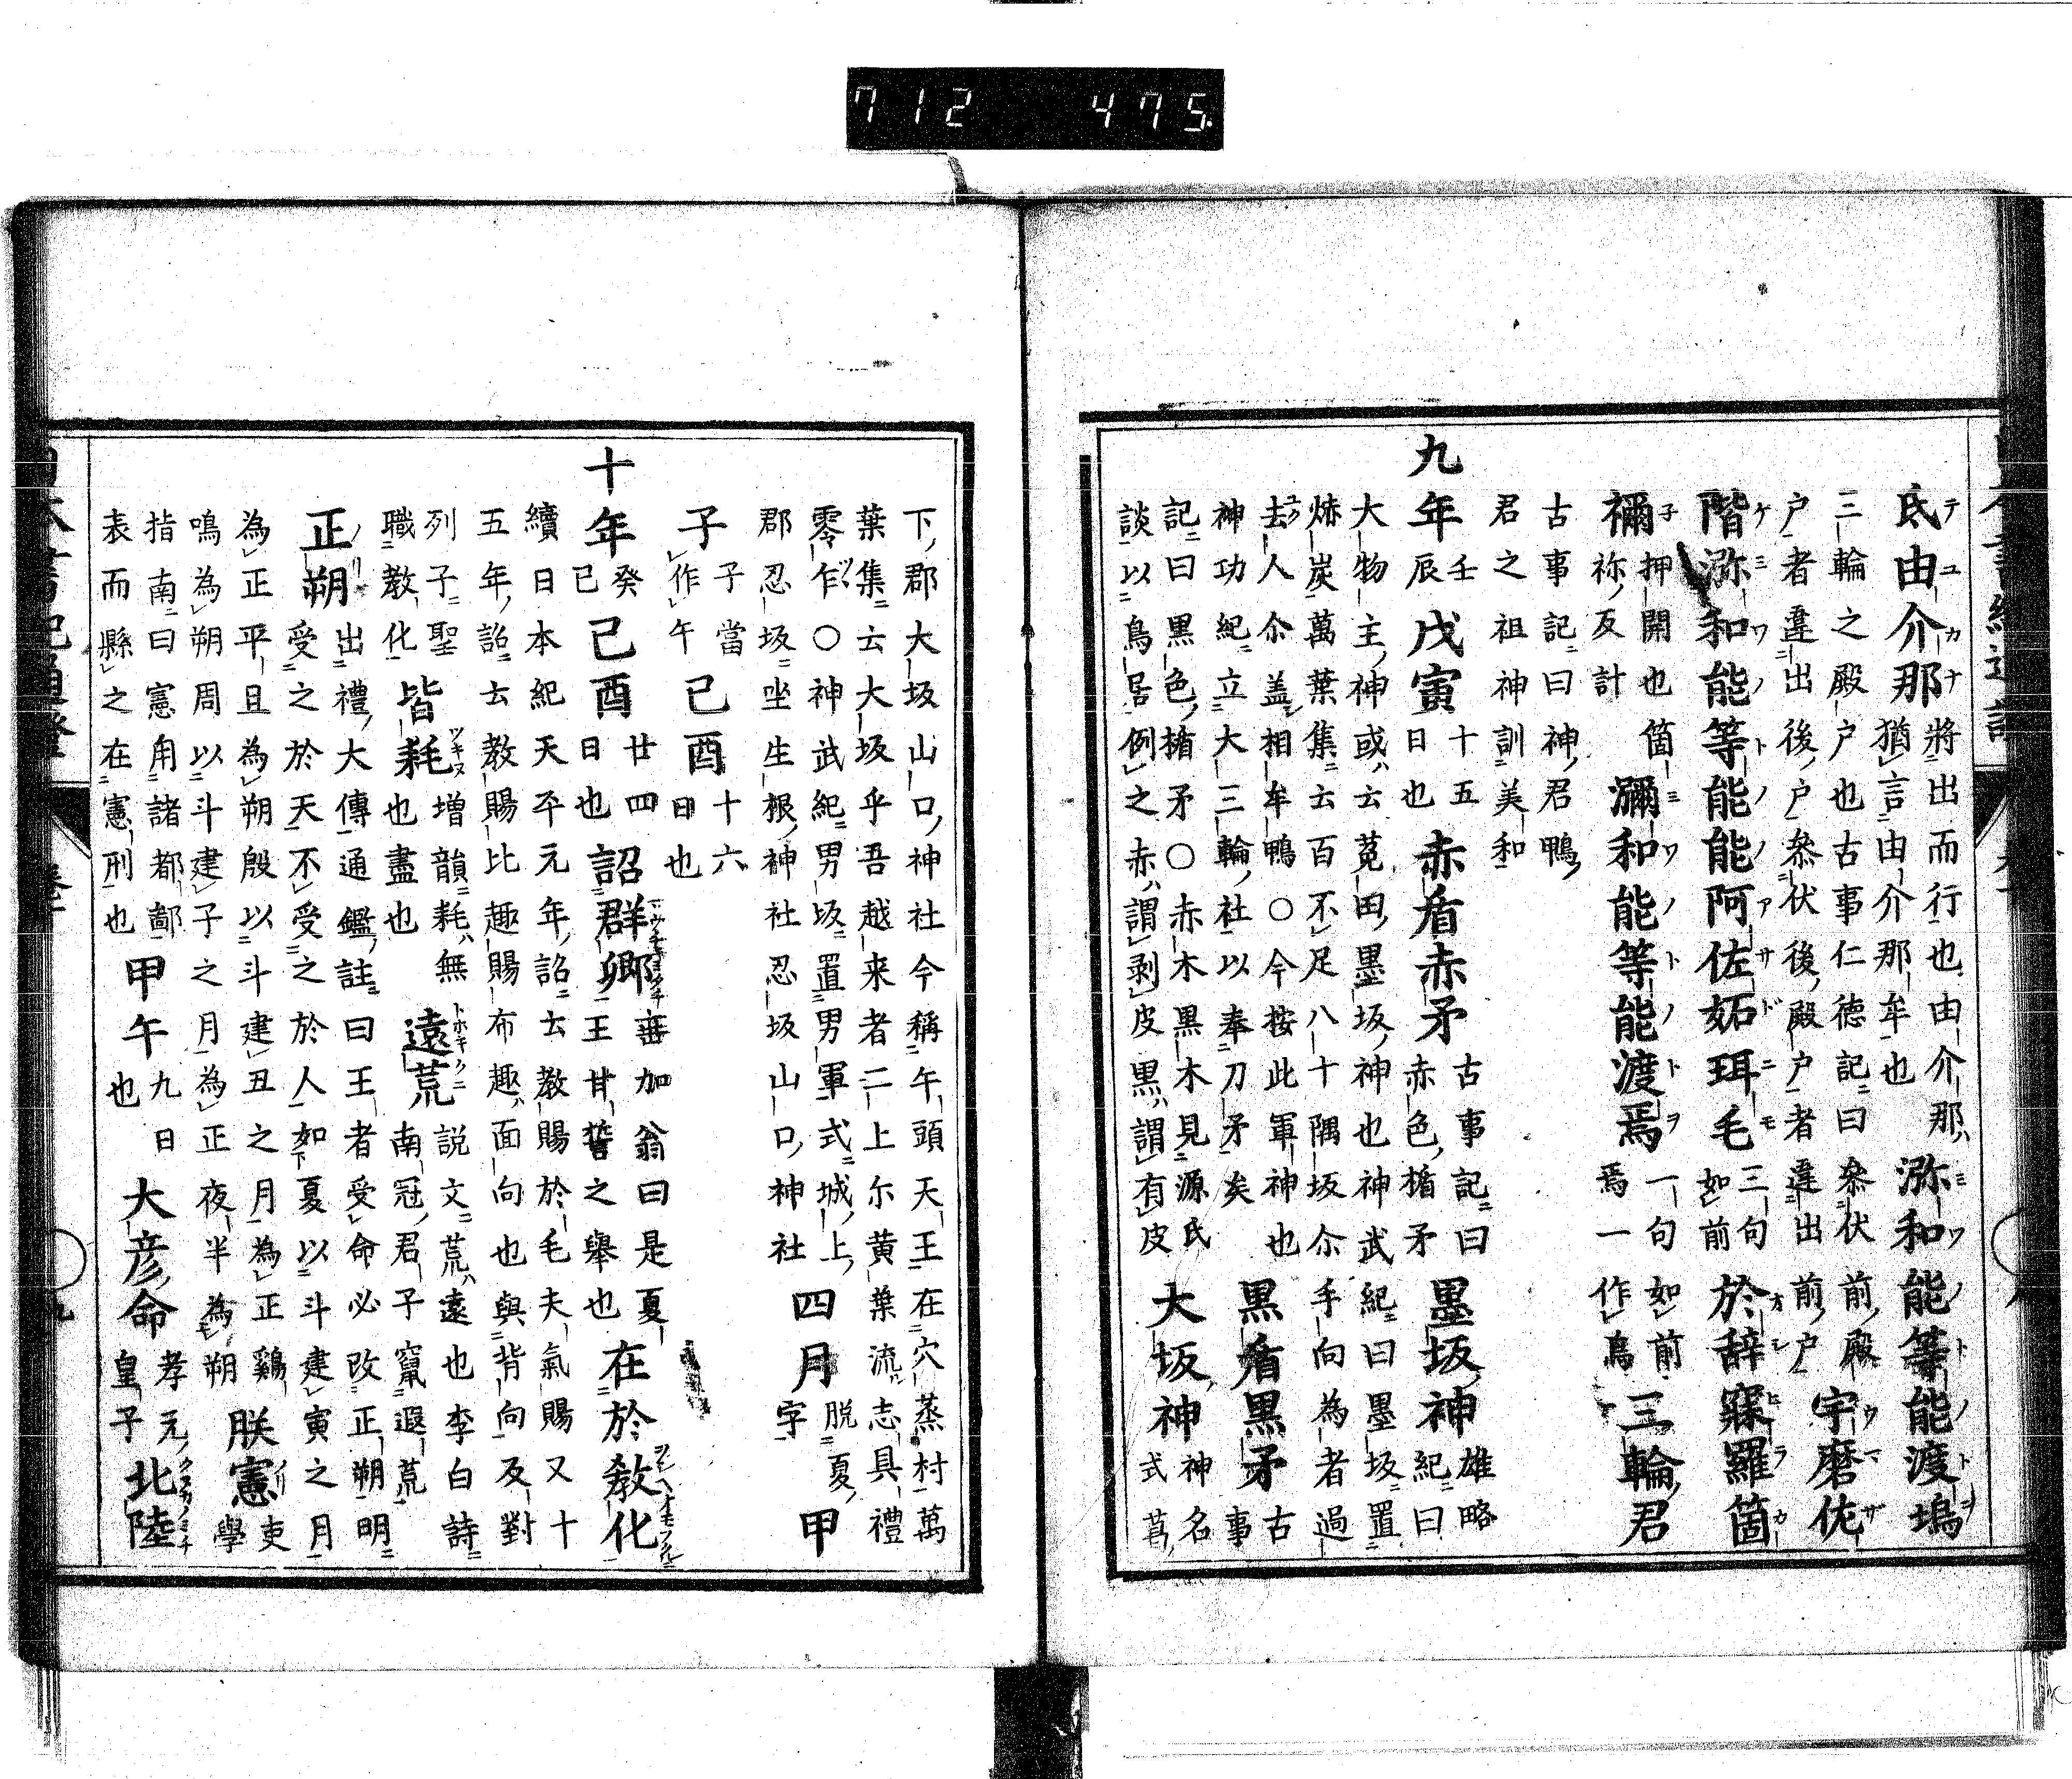 氐由介那將出而行也由介那猶言由介那牟也㳽和能等能渡塢
三輪之殿戸也古事仁徳記曰叅伏前殿戸者違出後戸叅伏後殿戸者違出前戸宇磨佐
階㳽和能等能能阿佐妬珥毛三句如前於辭寐羅箇
禰押開也箇祢反計瀰和能等能渡焉一句如前焉一作爲三輪君
古事記曰神君鴨君之祖神訓美和
九年壬辰戊寅十五日也赤盾赤矛古事記曰赤色楯矛墨坂神雄略紀曰
大物主神或云菟田墨坂神也神武紀曰墨坂置焃炭萬葉集云百不足八十隅坂尒手向為者過
去人尒盖相牟鴨○今按此軍神也神功紀立大三輪社以奉刀矛矣黒盾黒矛古事
記曰黒色楯矛○赤木黒木見源氏談以鳥居例之赤謂剥皮黒謂有皮大坂神神名式葛
下郡大坂山口神社今稱午頭天王在穴蒸村萬葉集云大坂乎吾越来者二上尓黄葉流志具禮
零乍○神武紀男坂置男軍式城上郡忍坂坐生根神社忍坂山口神社四月脱夏字甲
子子當作午己酉十六日也
十年癸巳己酉廿四日也詔群卿審加翁曰是夏王甘誓之舉也在於教化
續日本紀天平元年詔云教賜於毛夫氣賜又十五年詔云教賜比趣賜布趣面向也與背向反對
列子聖職教化皆耗増韻耗無也盡也遠荒説文荒遠也李白詩南冠君子竄遐荒
正朔出禮大傳通鑑註曰王者受命必改正朔明受之於天不受之於人如夏以斗建寅之月
為正平旦為朔殷以斗建丑之月為正鷄鳴為朔周以斗建子之月為正夜半為朔朕憲吏學
指南曰憲用諸都鄙表而縣之在憲刑也甲午九日也大彦命孝元皇子北陸